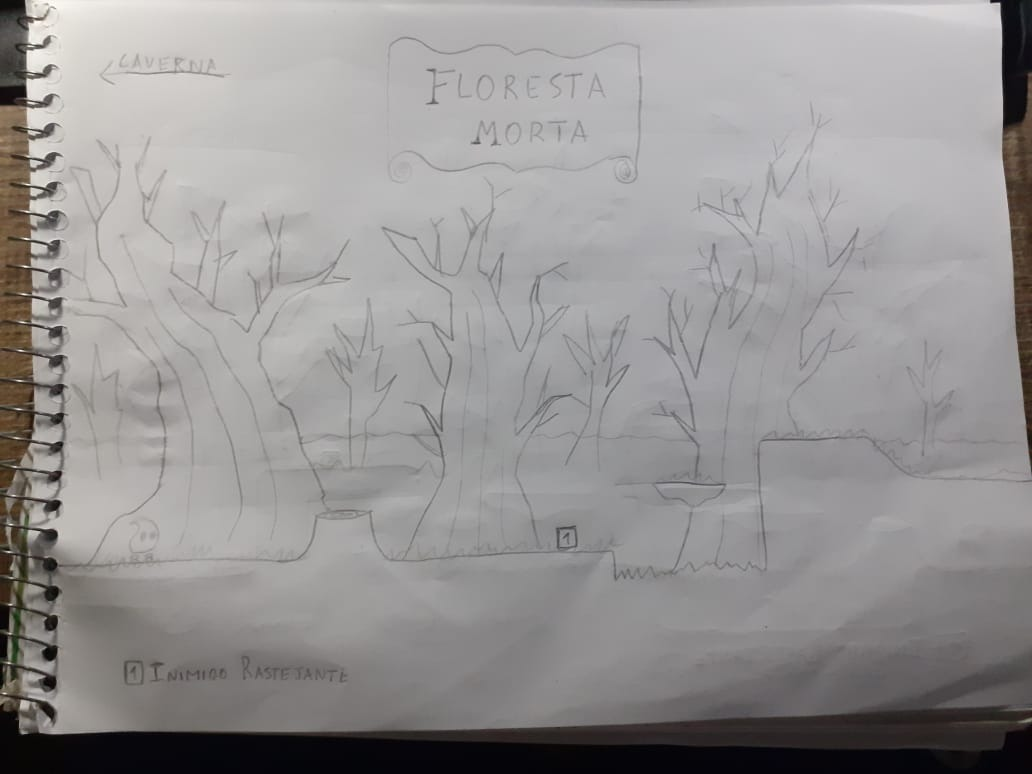 CAVERNA
FLORESTA
MORTA
1
1 INIMIGO RASTEJANTE